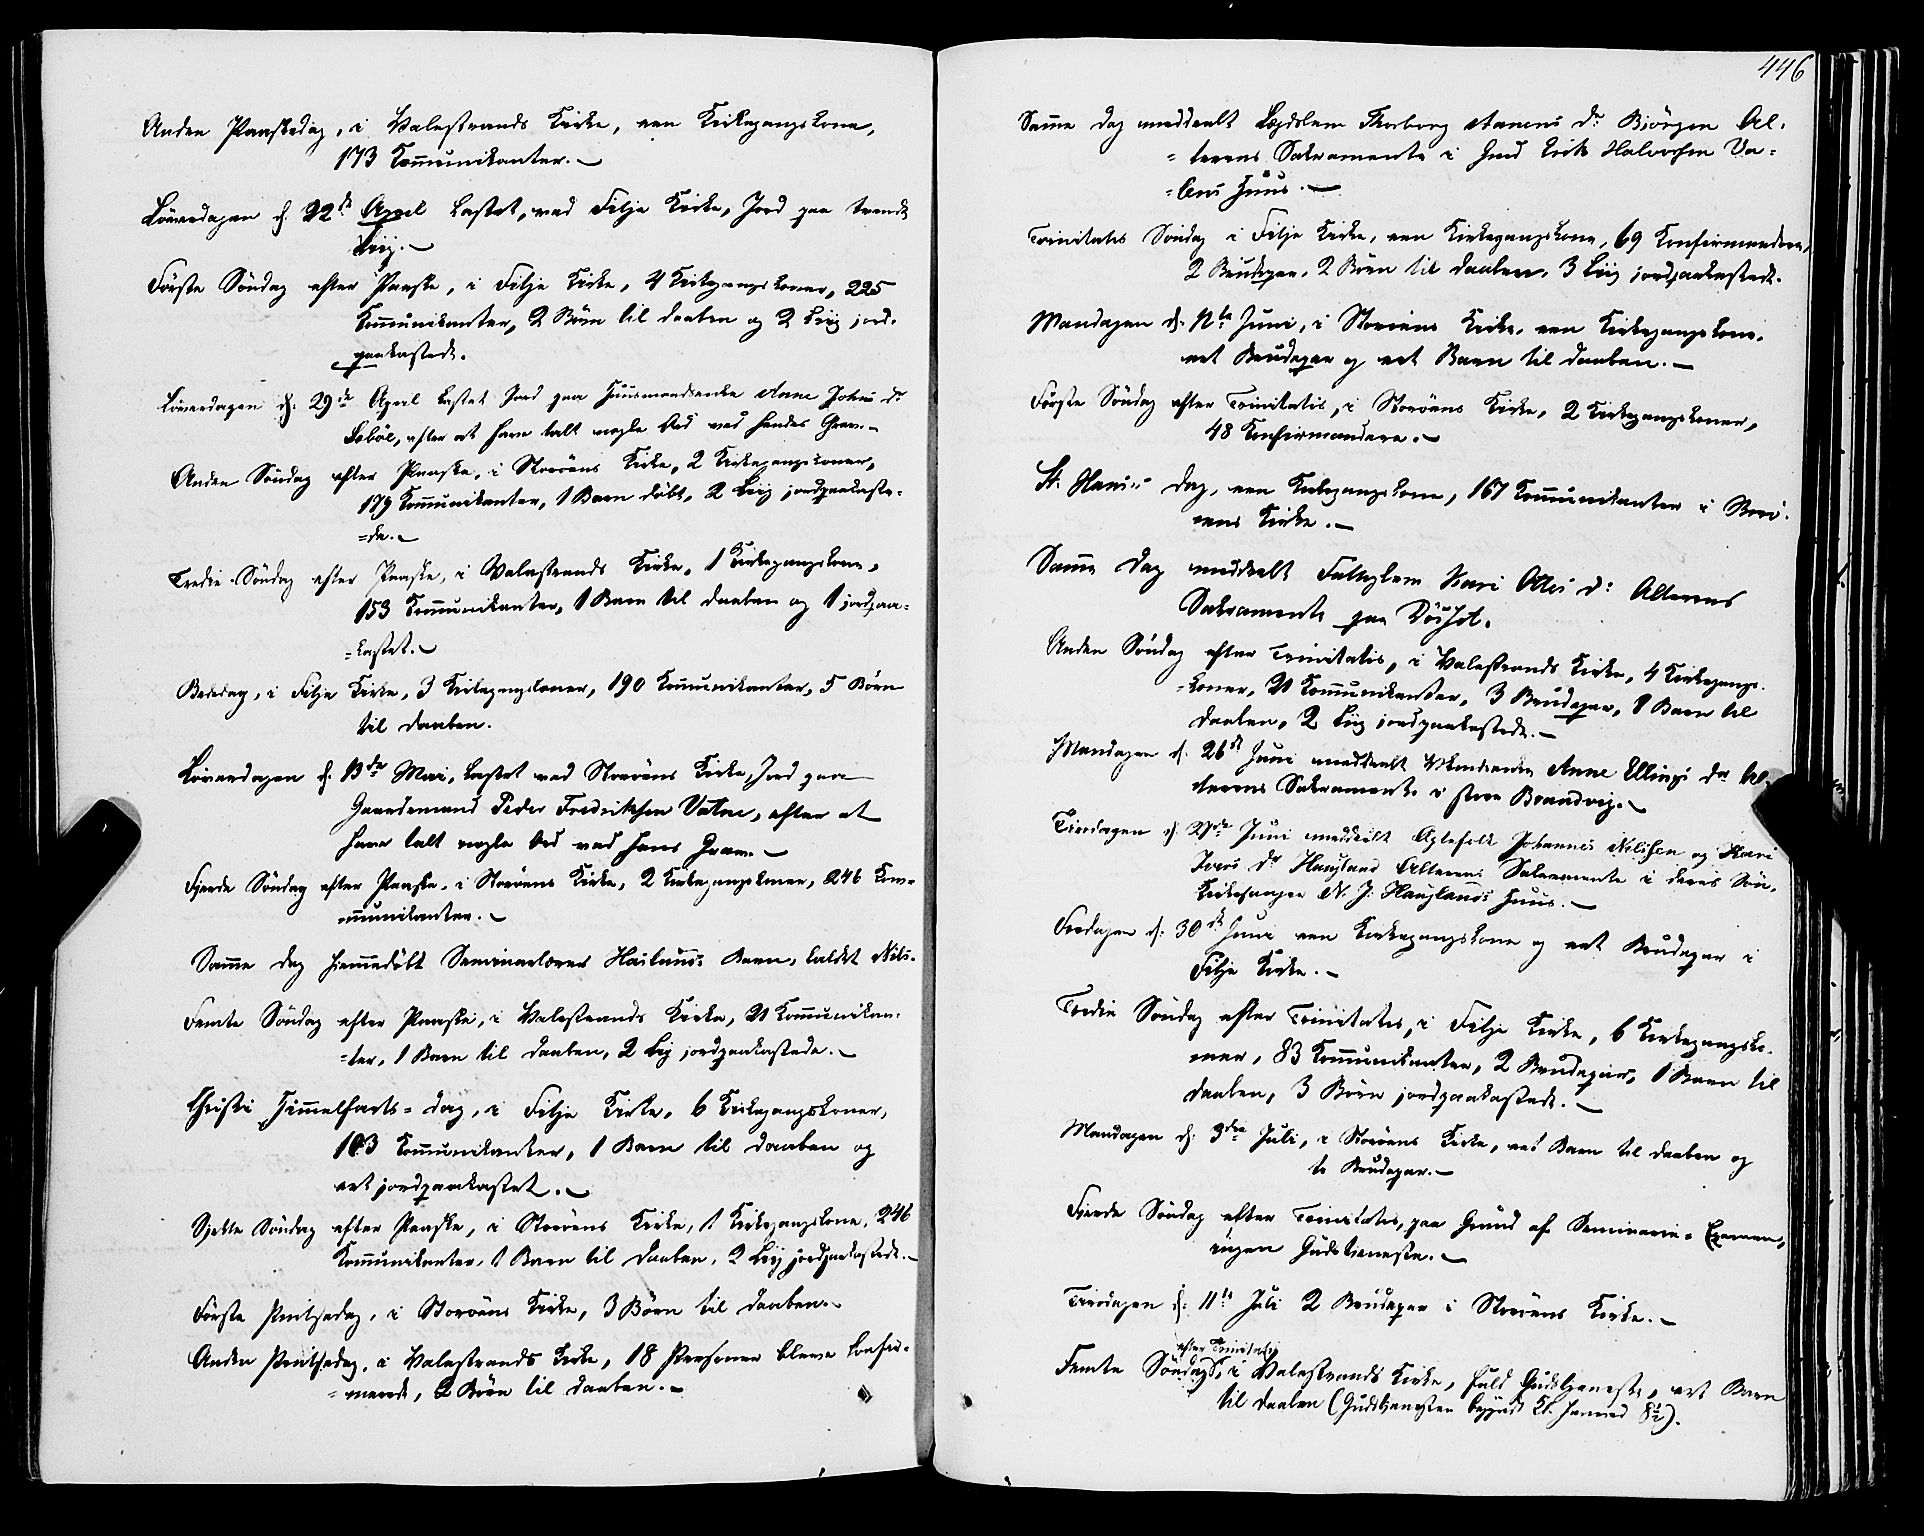 Anden Paaskedag, i Valestrands Kirke, een Kirkegangskone,
173 Kommunikanter.
Löverdagen d. 22de April kastet, ved Fitje Kirke, Jord paa trende
Liig.
Förste Söndag efter Paaske, i Fitje Kirke, 4 Kirkegangskoner, 225
Kommunikanter, 2 Börn til Daaben og 2 Liig jord-
paakastede.
Löverdagen d: 29de April kastet Jord paa Huusmandsenke Anne Johns Dr
, efter at have talt nogle Ord ved hendes Grav.
Anden Söndag efter Paaske, i Storöens Kirke, 2 Kirkegangskoner,
179 Kommunikanter, 1 Barn döbt, 2 Liig jordpaakaste-
=de.
Tredie Söndag efter Paaske, i Valestrands Kirke, 1 Kirkegangskone,
153 Kommunikanter, 1 Barn til Daaben og 1 jordpaa=
=kastet.
Bededag, i Fitje Kirke, 3 Kirkegangskoner, 190 Kommunikanter, 5 Börn
til Daaben.
Löverdagen d. 13de Mai, kastet ved Storöens Kirke, Jord paa
Gaardmand Peder Fredriksen Vatne, efter at
have talt nogle Ord ved hans Grav.
Fjerde Söndag efter Paaske, i Storöens Kirke, 2 Kirkegangskoner, 246 Kom=
munikanter.
Samme Dag hjemmedöbt Seminarlærer Barn, kaldet Nils.
Femte Söndag efter Paaske, i Valestrands Kirke, 21 Kommunikan-
=ter, 1 Barn til Daaben, 2 Liig jordpaakastede.
Christi Himmelfarts=dag, i Fitje Kirke, 6 Kirkegangskoner,
103 Kommunikanter, 1 Barn til Daaben og
eet jordpaakastet.
Sjette Söndag efter Paaske, i Storöens Kirke, 1 Kirkegangskone, 246
Kommunikanter, 1 Barn til Daaben, 2 Liig jordpaakastede.
Förste Pintsedag, i Storöens Kirke, 3 Börn til Daaben.
Anden Pintsedag, i Valestrands Kirke, 18 Personer bleve konfir-
=merede, 2 Börn til Daaben.
446
Samme Dag meddeelt Lægdslem Thorborg Dr Björgen Al-
=terens Sakramente i Huus.
Trinitatis Söndag i Fitje Kirke, een Kirkegangskone, 69 Konfirmandere,
2 Brudepar, 2 Börn til Daaben, 3 Liig jordpaakastede.
Mandagen d. 12te Juni, i Storöens Kirke, een Kirkegangskone,
eet Brudepar og eet Barn til Daaben.
Förste Söndag efter Trinitatis, i Storöens Kirke, 2 Kirkegangskoner,
48 Konfirmandere.
St. Hans Dag, een Kirkegangskone, 167 Kommunikanter i Storö-
ens Kirke.
Samme Dag meddeelt Fattiglem Kari Olles D: Alterens
Sakramente paa
Anden Söndag efter Trinitatis, i Valestrands Kirke, 4 Kirkegangs-
=koner, 21 Kommunikanter, 3 Brudepar, 1 Barn til
Daaben, 2 Liig jordpaakastede.
Mandagen d. 26de Juni meddeelt Anne Ellings Dr Al-
terens Sakramente i store Brandvig.
Tirsdagen d. 27de Juni meddeelt Ægtefolk Johannes Nilssen og Kari
Ivers Dr Haugland Alterens Sakramente i deres Sön,
Kirkesanger N. J. Hauglands Huus.
Fredagen d. 30de Juni een Kirkegangskone og eet Brudepar i
Fitje Kirke.
Tredie Söndag efter Trinitatis, i Fitje Kirke, 6 Kirkegangsko-
ner, 83 Kommunikanter, 2 Brudepar, 1 Barn til
Daaben, 3 Börn jordpaakastede.
Mandagen d. 3die Juli, i Storöens Kirke, eet Barn til Daaben og
to Brudepar.
Fjerde Söndag efter Trinitatis, paa Grund af Seminarie=Examen,
ingen Gudstjeneste.
Tirsdagen d: 11te Juli 2 Brudepar i Storöens Kirke.
efter Trinitatis
Femte Söndag, i Valestrands Kirke, fuld Gudstjeneste, eet Barn
til Daaben (Gudstjenesten begyndt Kl. 8½).